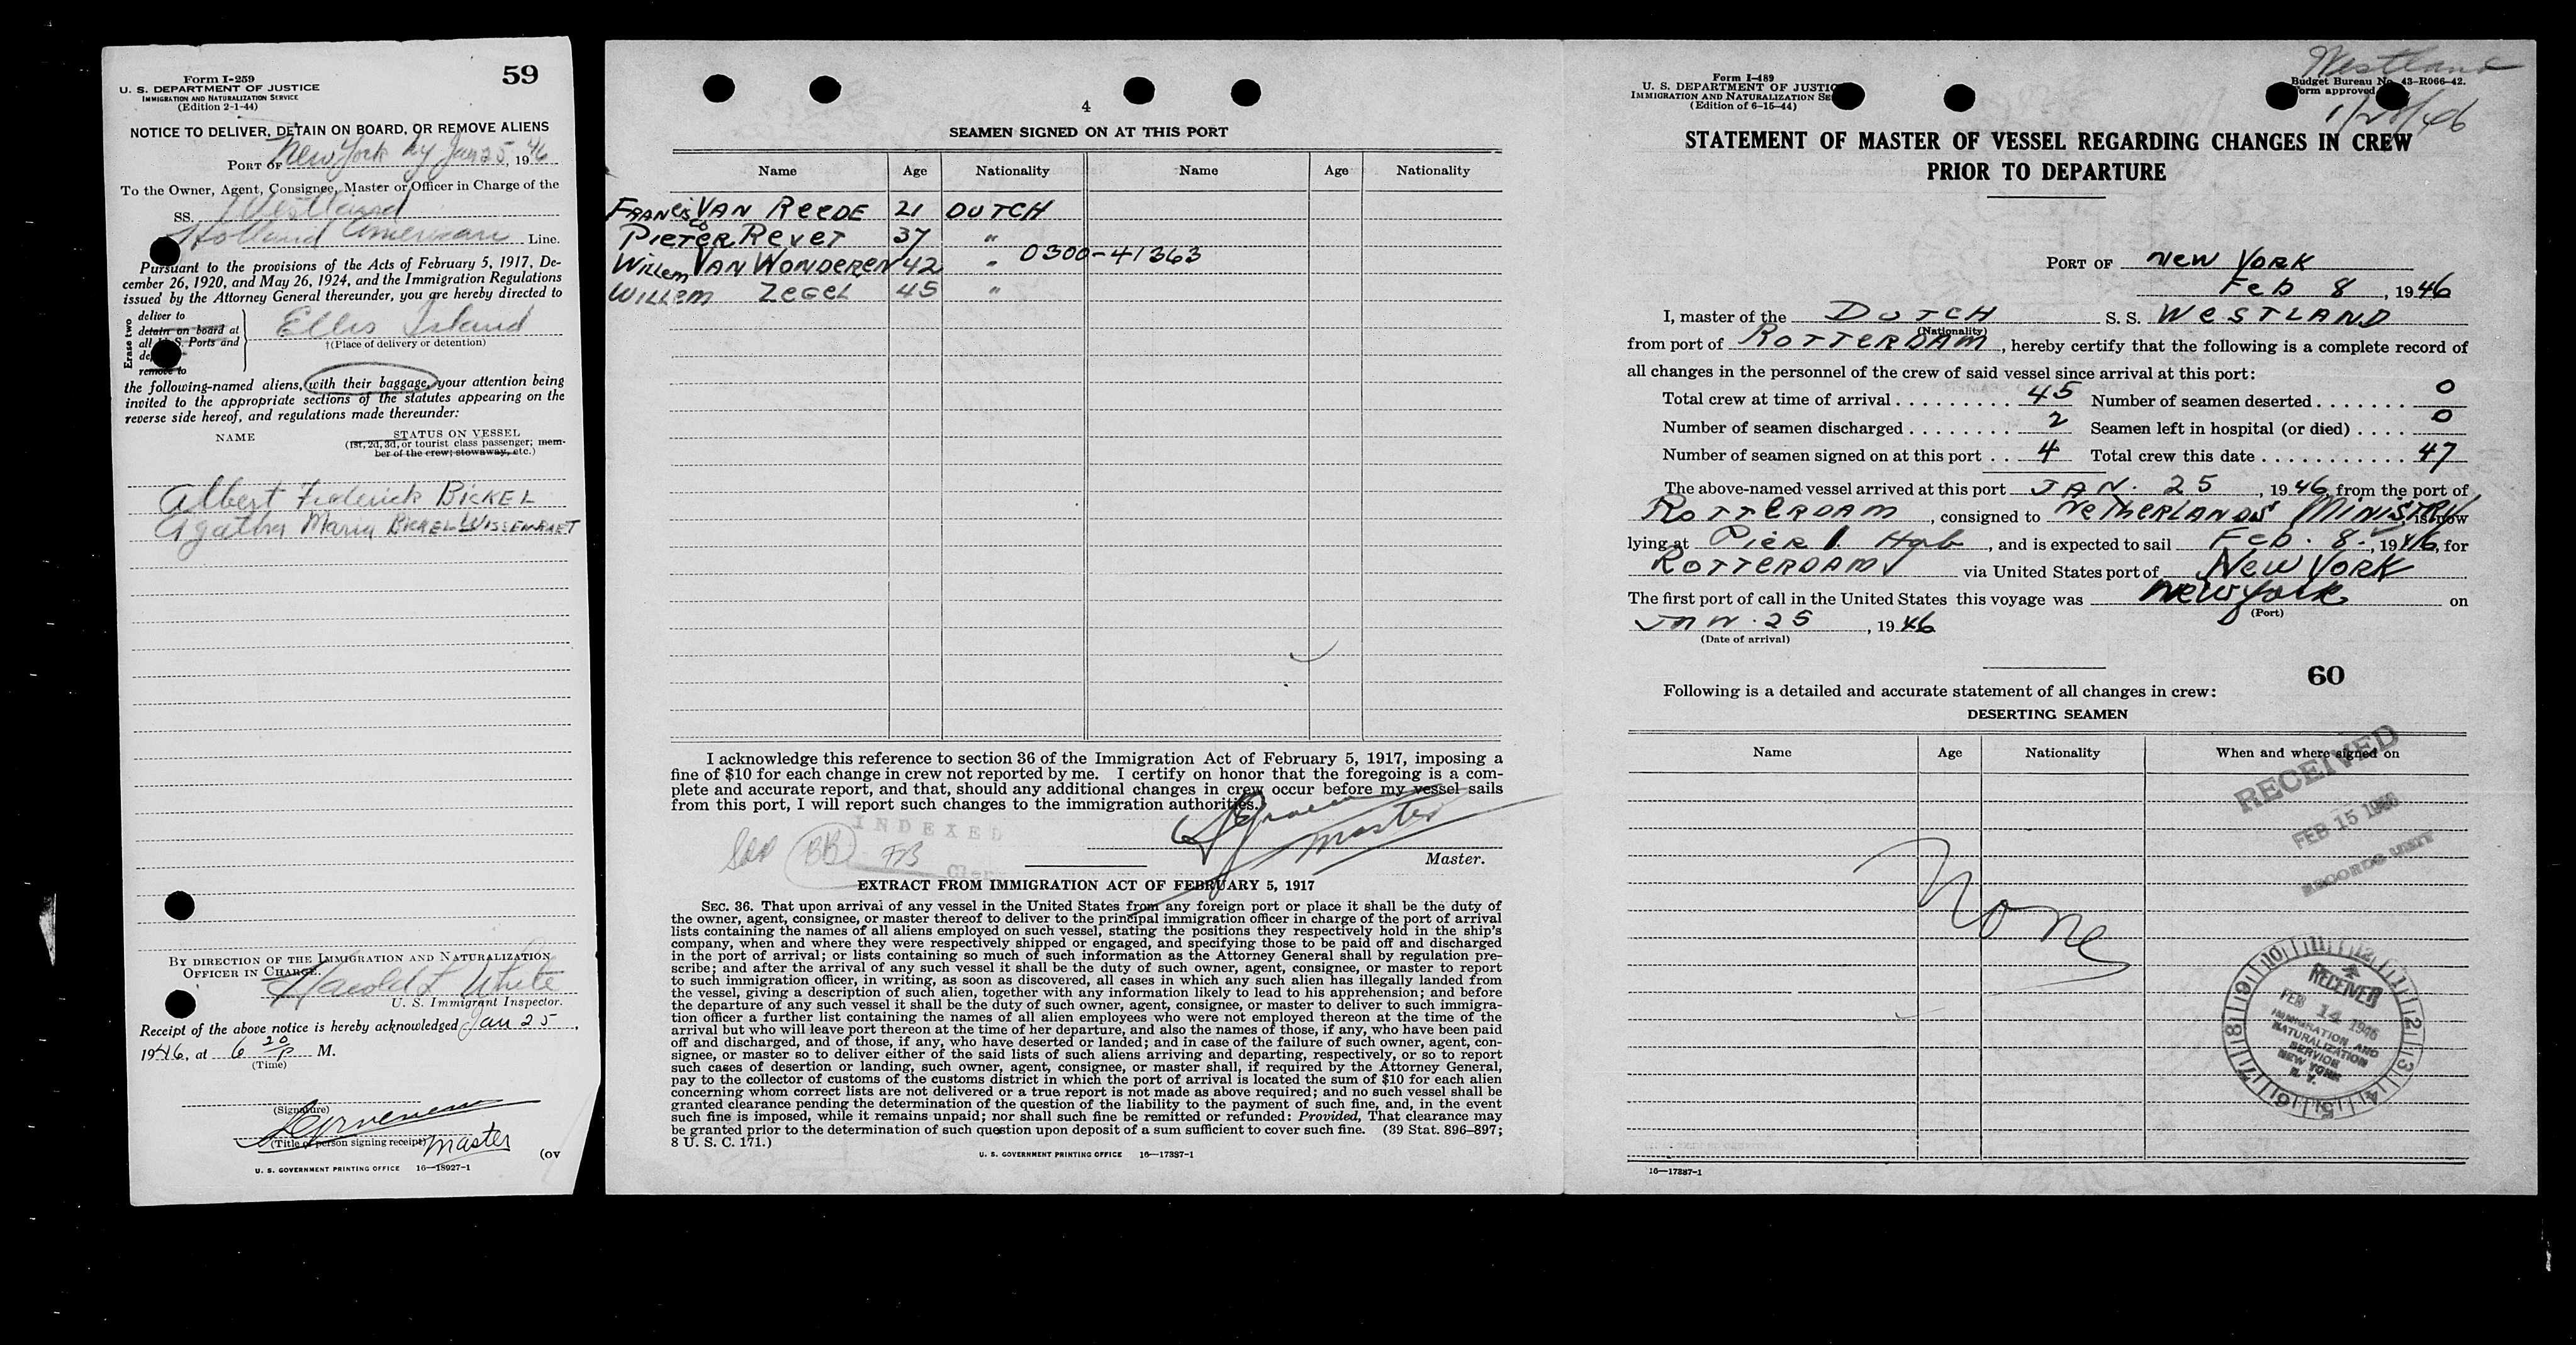 Form I-259
59
U. S. DEPARTMENT OF JUSTICE
IMMIGRATION AND NATURALIZATION SERVICE
(Edition 2-1-44)
NOTICE TO DELIVER, DETAIN ON BOARD, OR REMOVE ALIENS
PORT OF New York Ny Jan 25, 1946
To the Owner, Agent, Consignee, Master or Officer in Charge of the
SS. Westland
Holland American Line.
Pursuant to the provisions of the Acts of February 5, 1917, De-
cember 26, 1920, and May 26, 1924, and the Immigration Regulations
issued by the Attorney General thereunder, you are hereby directed to
Erase two
deliver to
detain on board at
all U. S. Ports and
remove to
Ellis Island
†(Place of delivery or detention)
the following-named aliens, with their baggage, your attention being
invited to the appropriate sections of the statutes appearing on the
reverse side hereof, and regulations made thereunder:
NAME STATUS ON VESSEL
(1st, 2d, 3d, or tourist class passenger; mem-
ber of the crew; stowaway, etc.)
Albert Frederick BICKEL
Agatha Maria BICKEL WISSENRAET
BY DIRECTION OF THE IMMIGRATION AND NATURALIZATION
OFFICER IN CHARGE.
Harold L White
U. S. Immigrant Inspector.
Receipt of the above notice is hereby acknowledged Jan 25,
1946, at 6 20 P M.
(Time)
(Signature)
(Title of person signing receipt) Master
(ov
U. S. GOVERNMENT PRINTING OFFICE 16—18927-1
4
SEAMEN SIGNED ON AT THIS PORT
Name Age Nationality Name Age Nationality
FRANCISCO VAN REEDE 21 DUTCH
PIETER REVET 37 "
WILLEM VAN WONDEREN 42 " 0300-41363
WILLEM ZEGEL 45 "
I acknowledge this reference to section 36 of the Immigration Act of February 5, 1917, imposing a
fine of $10 for each change in crew not reported by me. I certify on honor that the foregoing is a com-
plete and accurate report, and that, should any additional changes in crew occur before my vessel sails
from this port, I will report such changes to the immigration authorities.
INDEXED
BB FB
Master
Clerk
Master.
EXTRACT FROM IMMIGRATION ACT OF FEBRUARY 5, 1917
SEC. 36. That upon arrival of any vessel in the United States from any foreign port or place it shall be the duty of
the owner, agent, consignee, or master thereof to deliver to the principal immigration officer in charge of the port of arrival
lists containing the names of all aliens employed on such vessel, stating the positions they respectively hold in the ship's
company, when and where they were respectively shipped or engaged, and specifying those to be paid off and discharged
in the port of arrival; or lists containing so much of such information as the Attorney General shall by regulation pre-
scribe; and after the arrival of any such vessel it shall be the duty of such owner, agent, consignee, or master to report
to such immigration officer, in writing, as soon as discovered, all cases in which any such alien has illegally landed from
the vessel, giving a description of such alien, together with any information likely to lead to his apprehension; and before
the departure of any such vessel it shall be the duty of such owner, agent, consignee, or master to deliver to such immigra-
tion officer a further list containing the names of all alien employees who were not employed thereon at the time of the
arrival but who will leave port thereon at the time of her departure, and also the names of those, if any, who have been paid
off and discharged, and of those, if any, who have deserted or landed; and in case of the failure of such owner, agent, con-
signee, or master so to deliver either of the said lists of such aliens arriving and departing, respectively, or so to report
such cases of desertion or landing, such owner, agent, consignee, or master shall, if required by the Attorney General,
pay to the collector of customs of the customs district in which the port of arrival is located the sum of $10 for each alien
concerning whom correct lists are not delivered or a true report is not made as above required; and no such vessel shall be
granted clearance pending the determination of the question of the liability to the payment of such fine, and, in the event
such fine is imposed, while it remains unpaid; nor shall such fine be remitted or refunded: Provided, That clearance may
be granted prior to the determination of such question upon deposit of a sum sufficient to cover such fine. (39 Stat. 896–897;
8 U. S. C. 171.)
U. S. GOVERNMENT PRINTING OFFICE 16—17387-1
Form I-489
U. S. DEPARTMENT OF JUSTIC
IMMIGRATION AND NATURALIZATION SE
(Edition of 6-15-44)
Westland
Budget Bureau No. 43-R066-42.
Form approved
STATEMENT OF MASTER OF VESSEL REGARDING CHANGES IN CREW
PRIOR TO DEPARTURE
PORT OF NEW YORK
Feb 8, 1946
I, master of the DUTCH S. S. WESTLAND
(Nationality)
from port of ROTTERDAM, hereby certify that the following is a complete record of
all changes in the personnel of the crew of said vessel since arrival at this port:
Total crew at time of arrival 45 Number of seamen deserted 0
Number of seamen discharged 2 Seamen left in hospital (or died) 0
Number of seamen signed on at this port 4 Total crew this date 47
The above-named vessel arrived at this port JAN. 25, 1946, from the port of
ROTTERDAM, consigned to NETHERLANDS MINISTRY, is now
lying at PIER 1 Hob, and is expected to sail Feb. 8, 1946, for
ROTTERDAM via United States port of NEW YORK
The first port of call in the United States this voyage was New York on
(Port)
JAN. 25, 1946
(Date of arrival)
60
Following is a detailed and accurate statement of all changes in crew:
DESERTING SEAMEN
Name Age Nationality When and where signed on
RECEIVED
FEB 15 1946
RECORDS UNIT
None
RECEIVED
FEB 14 1946
IMMIGRATION AND
NATURALIZATION
SERVICE
NEW YORK
N. Y.
16—17387-1